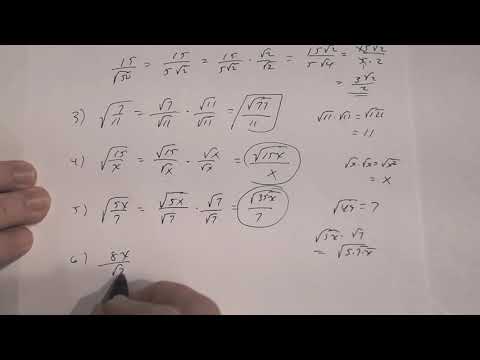 15/√50 = 15/(5√2) = 15/(5√2) · √2/√2 = 15√2/(5√4) = 15√2/(5·2)
= 3√2/2
3) √(7/11) = √7/√11 · √11/√11 = √77/11
√11·√11 = √121
= 11
4) √(15/x) = √15/√x · √x/√x = √15x/x
√x·√x = √x²
= x
5) √(5x/7) = √5x/√7 · √7/√7 = √35x/7
√49 = 7
√5x · √7
= √5·7·x
6) 8x/